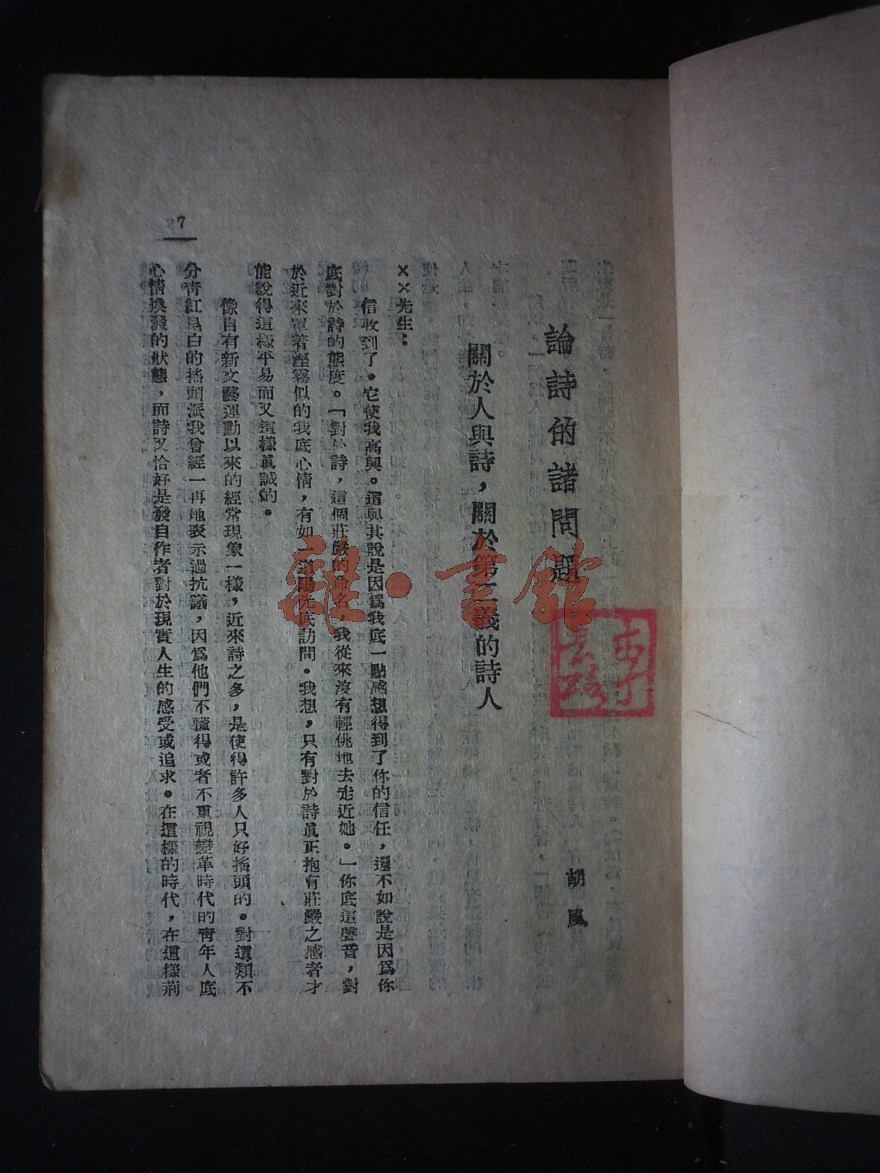 論詩的諸問題
胡風
關於人與詩，關於第二義的詩人
××先生：
信收到了。它使我高興。這與其說是因爲我底一點感想得到了你的信任，還不如說是因爲你
底對於詩的態度。「對於詩，這個莊嚴的命名，我從來沒有輕佻地去走近她。」你底這聲音，對
於近來罩着溼霧似的我底心情，有如一道陽光底訪問。我想，只有對於詩眞正抱有莊嚴之感者才
能說得這樣平易而又這樣眞誠的。
像自有新文藝運動以來的經常現象一樣，近來詩之多，是使得許多人只好搖頭的。對這類不
分靑紅皂白的搖頭派我曾經一再地表示過抗議，因爲他們不懂得或者不重視變革時代的靑年人底
心情換發的狀態，而詩又恰好是發自作者對於現實人生的感受或追求。在這樣的時代，在這樣荊
7
雜·書館